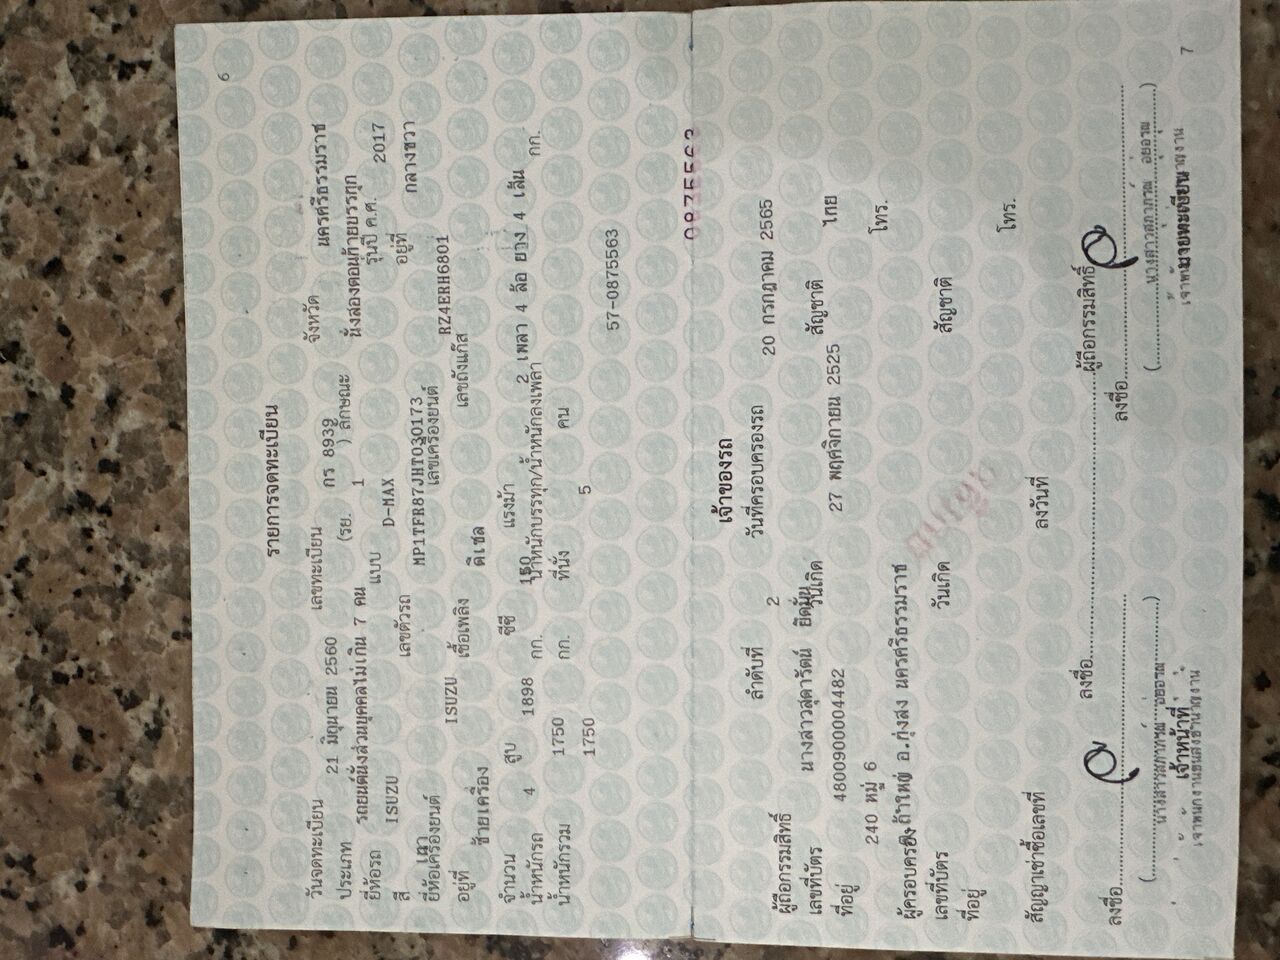 6
รายการจดทะเบียน
วันจดทะเบียน 21 มิถุนายน 2560 เลขทะเบียน กร 8939 จังหวัด นครศรีธรรมราช
ประเภท รถยนต์นั่งส่วนบุคคลไม่เกิน 7 คน (รย. 1 ) ลักษณะ นั่งสองตอนท้ายบรรทุก
ยี่ห้อรถ ISUZU แบบ D-MAX รุ่นปี ค.ศ. 2017
สี เทา เลขตัวรถ MP1TFR87JHT030173 อยู่ที่ กลางขวา
ยี่ห้อเครื่องยนต์ ISUZU เลขเครื่องยนต์ RZ4ERH6801
อยู่ที่ ซ้ายเครื่อง เชื้อเพลิง ดีเซล เลขถังแก๊ส
จำนวน 4 สูบ 1898 ซีซี 150 แรงม้า 2 เพลา 4 ล้อ ยาง 4 เส้น
น้ำหนักรถ 1750 กก. น้ำหนักบรรทุก/น้ำหนักลงเพลา กก.
น้ำหนักรวม 1750 กก. ที่นั่ง 5 คน
57-0875563
0875563
เจ้าของรถ
ลำดับที่ 2 วันที่ครอบครองรถ 20 กรกฎาคม 2565
ผู้ถือกรรมสิทธิ์ นางสาวสุดารัตน์
เลขที่บัตร 4800900004482 วันเกิด 27 พฤศจิกายน 2525 สัญชาติ ไทย
ที่อยู่ 240 หมู่ 6 ต.ถ้ำใหญ่ อ.ทุ่งสง นครศรีธรรมราช โทร.
ผู้ครอบครอง
เลขที่บัตร วันเกิด สัญชาติ
ที่อยู่ โทร.
สัญญาเช่าซื้อเลขที่ ลงวันที่
ลงชื่อ ผู้ถือกรรมสิทธิ์
ลงชื่อ ลงชื่อ
เจ้าหน้าที่ นายทะเบียน
7